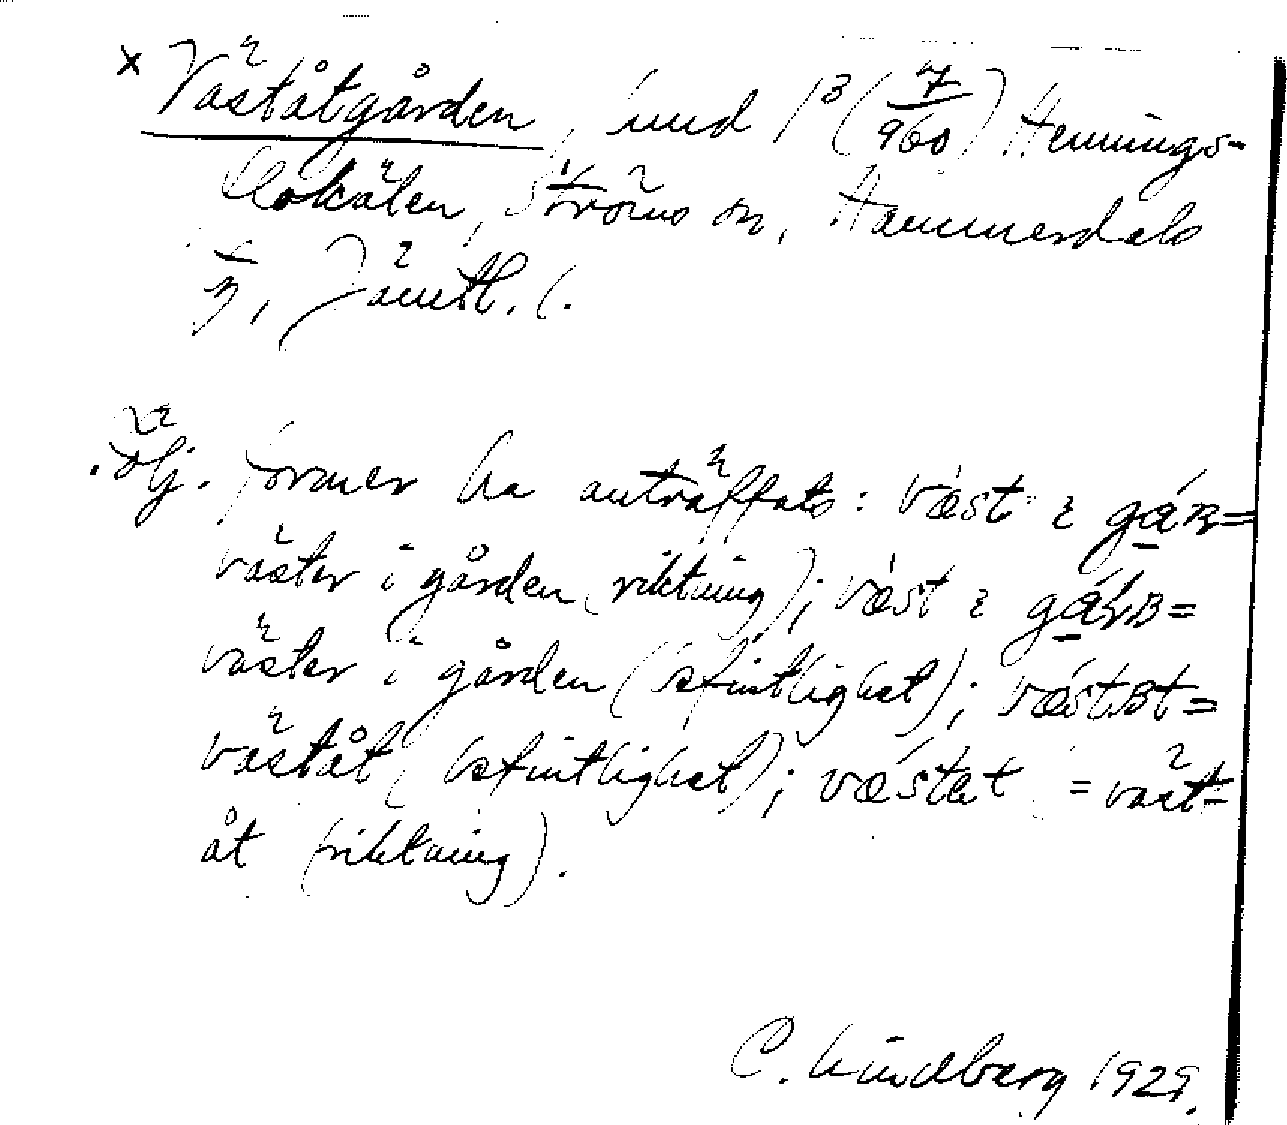 x Väståtgården, hmd 1³ (7/960) Hennings-
klokälen, Ströms sn, Hammerdals
t, Jämtl. l.
följ. former ha anträffats: væst i gáʀ=
väster i gården (riktning); væst i gáɽʙ=
väster i gården (befintlighet); vǽstʙt=
väståt (befintlighet); vǽstat = väst-
åt (riktning).
C. Lindberg 1929.